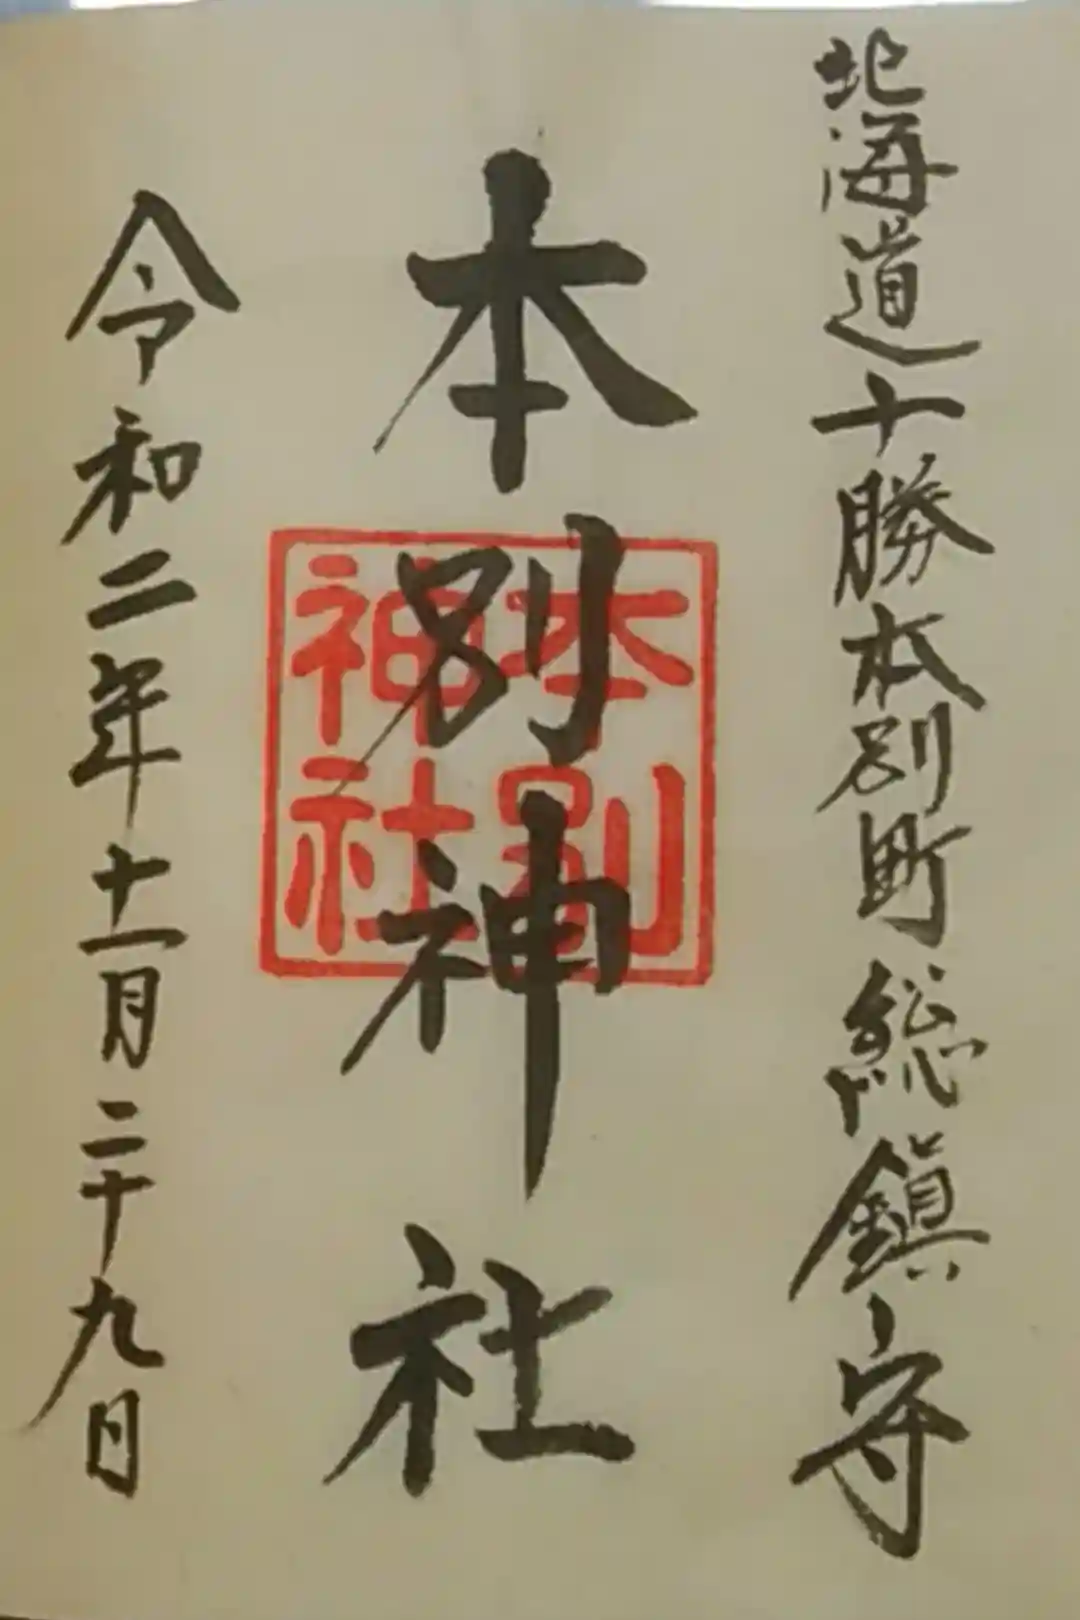 北海道十勝本別町総鎮守
本別神社
本別
神社
令和二年十一月二十九日